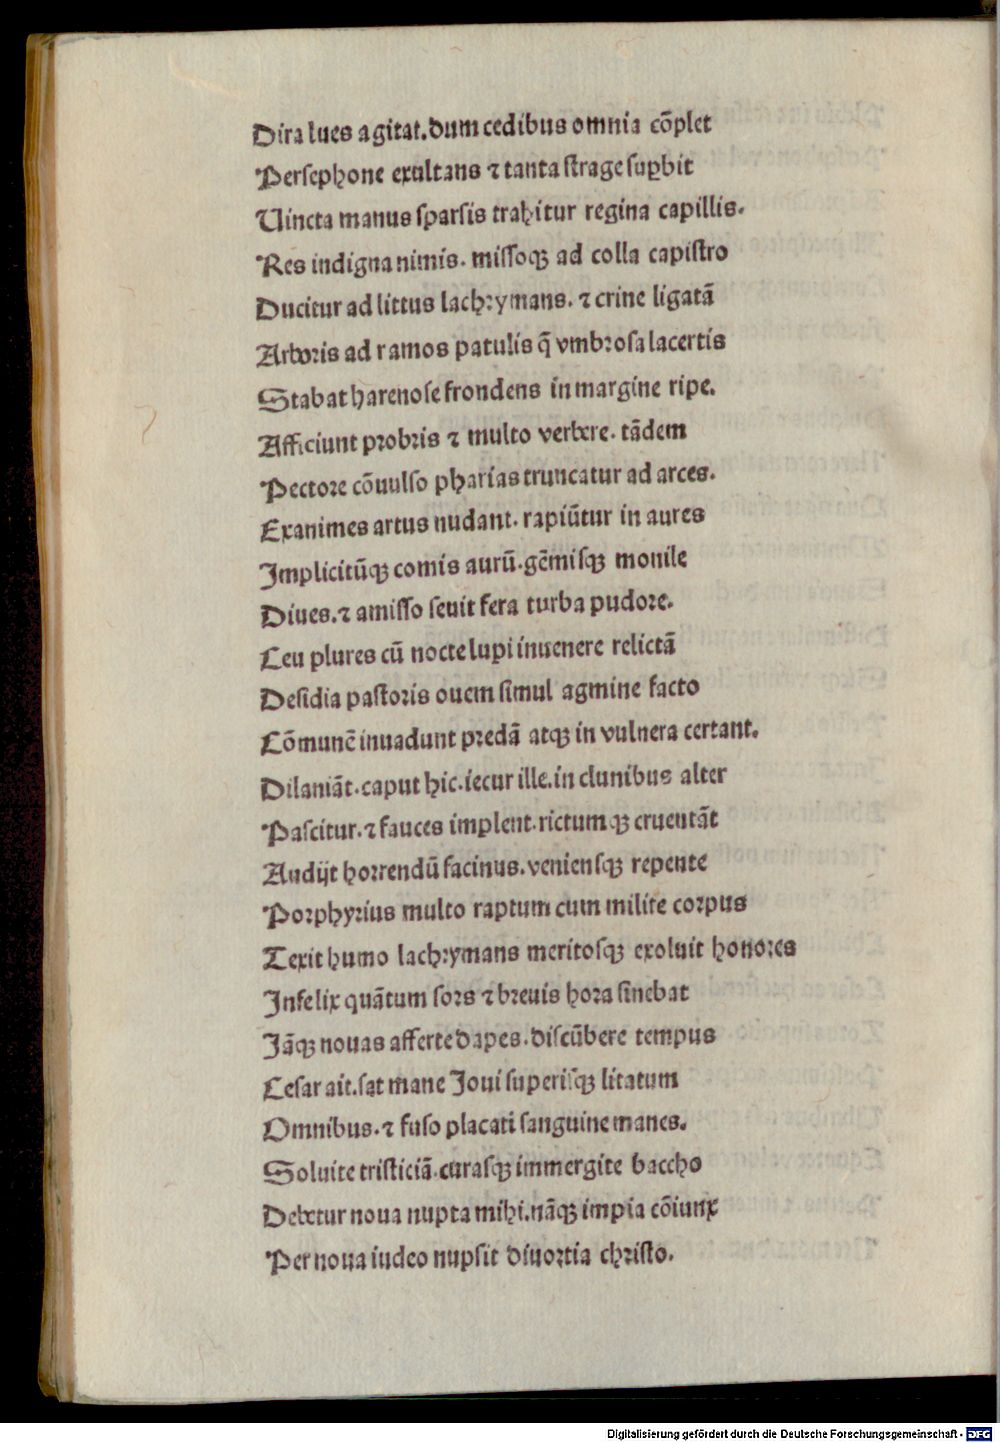 Dira lues agitat. dum cedibus omnia cōplet
Persephone exultans ⁊ tanta strage suꝑbit
Uincta manus sparsis trahitur regina capillis.
Res indigna nimis. missoqꝫ ad colla capistro
Ducitur ad littus lachrymans. ⁊ crine ligatā
Arboris ad ramos patulis q̄ vmbrosa lacertis
Stabat harenose frondens in margine ripe.
Afficiunt probris ⁊ multo verbere. tādem
Pectore cōuulso pharias truncatur ad arces.
Exanimes artus nudant. rapiūtur in aures
Implicitūqꝫ comis aurū. gēmisqꝫ monile
Diues. ⁊ amisso seuit fera turba pudore.
Ceu plures cū nocte lupi inuenere relictā
Desidia pastoris ouem simul agmine facto
Cōmunē inuadunt predā atqꝫ in vulnera certant.
Dilaniāt. caput hic. iecur ille. in clunibus alter
Pascitur. ⁊ fauces implent. rictumqꝫ cruentāt
Audijt horrendū facinus. veniensqꝫ repente
Porphyrius multo raptum cum milite corpus
Texit humo lachrymans meritosqꝫ exoluit honores
Infelix quātum sors ⁊ breuis hora sinebat
Jāqꝫ nouas afferte dapes. discūbere tempus
Cesar ait. sat mane Joui superisqꝫ litatum
Omnibus. ⁊ fuso placati sanguine manes.
Soluite tristiciā. curasqꝫ immergite baccho
Debetur noua nupta mihi. nāqꝫ impia cōiunx
Per noua iudeo nupsit diuortia christo.
Digitalisierung gefördert durch die Deutsche Forschungsgemeinschaft - DFG